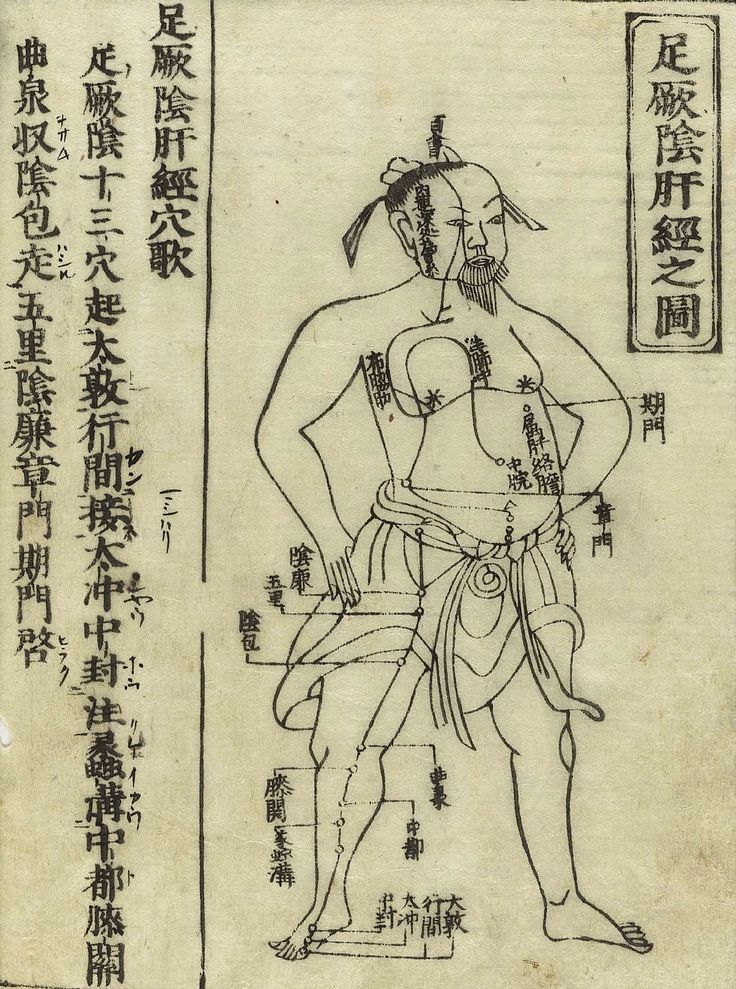 足厥陰肝經之圖
百會
注肺中
布脇肋
期門
属肝絡膽
中脘
章門
陰廉
五里
陰包
曲泉
膝関
中都
蠡溝
大敦
行間
太冲
中封
足厥陰肝經穴歌
足厥陰十三穴起太敦行間接太冲中封注蠡溝中都膝關
曲泉収陰包走五里陰廉章門期門啓
ハシル
ヒラク